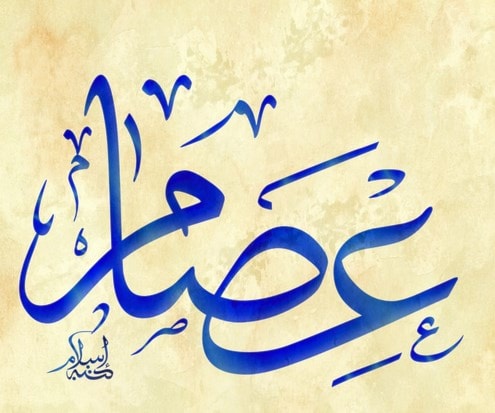 عصام
كتبه إسلام